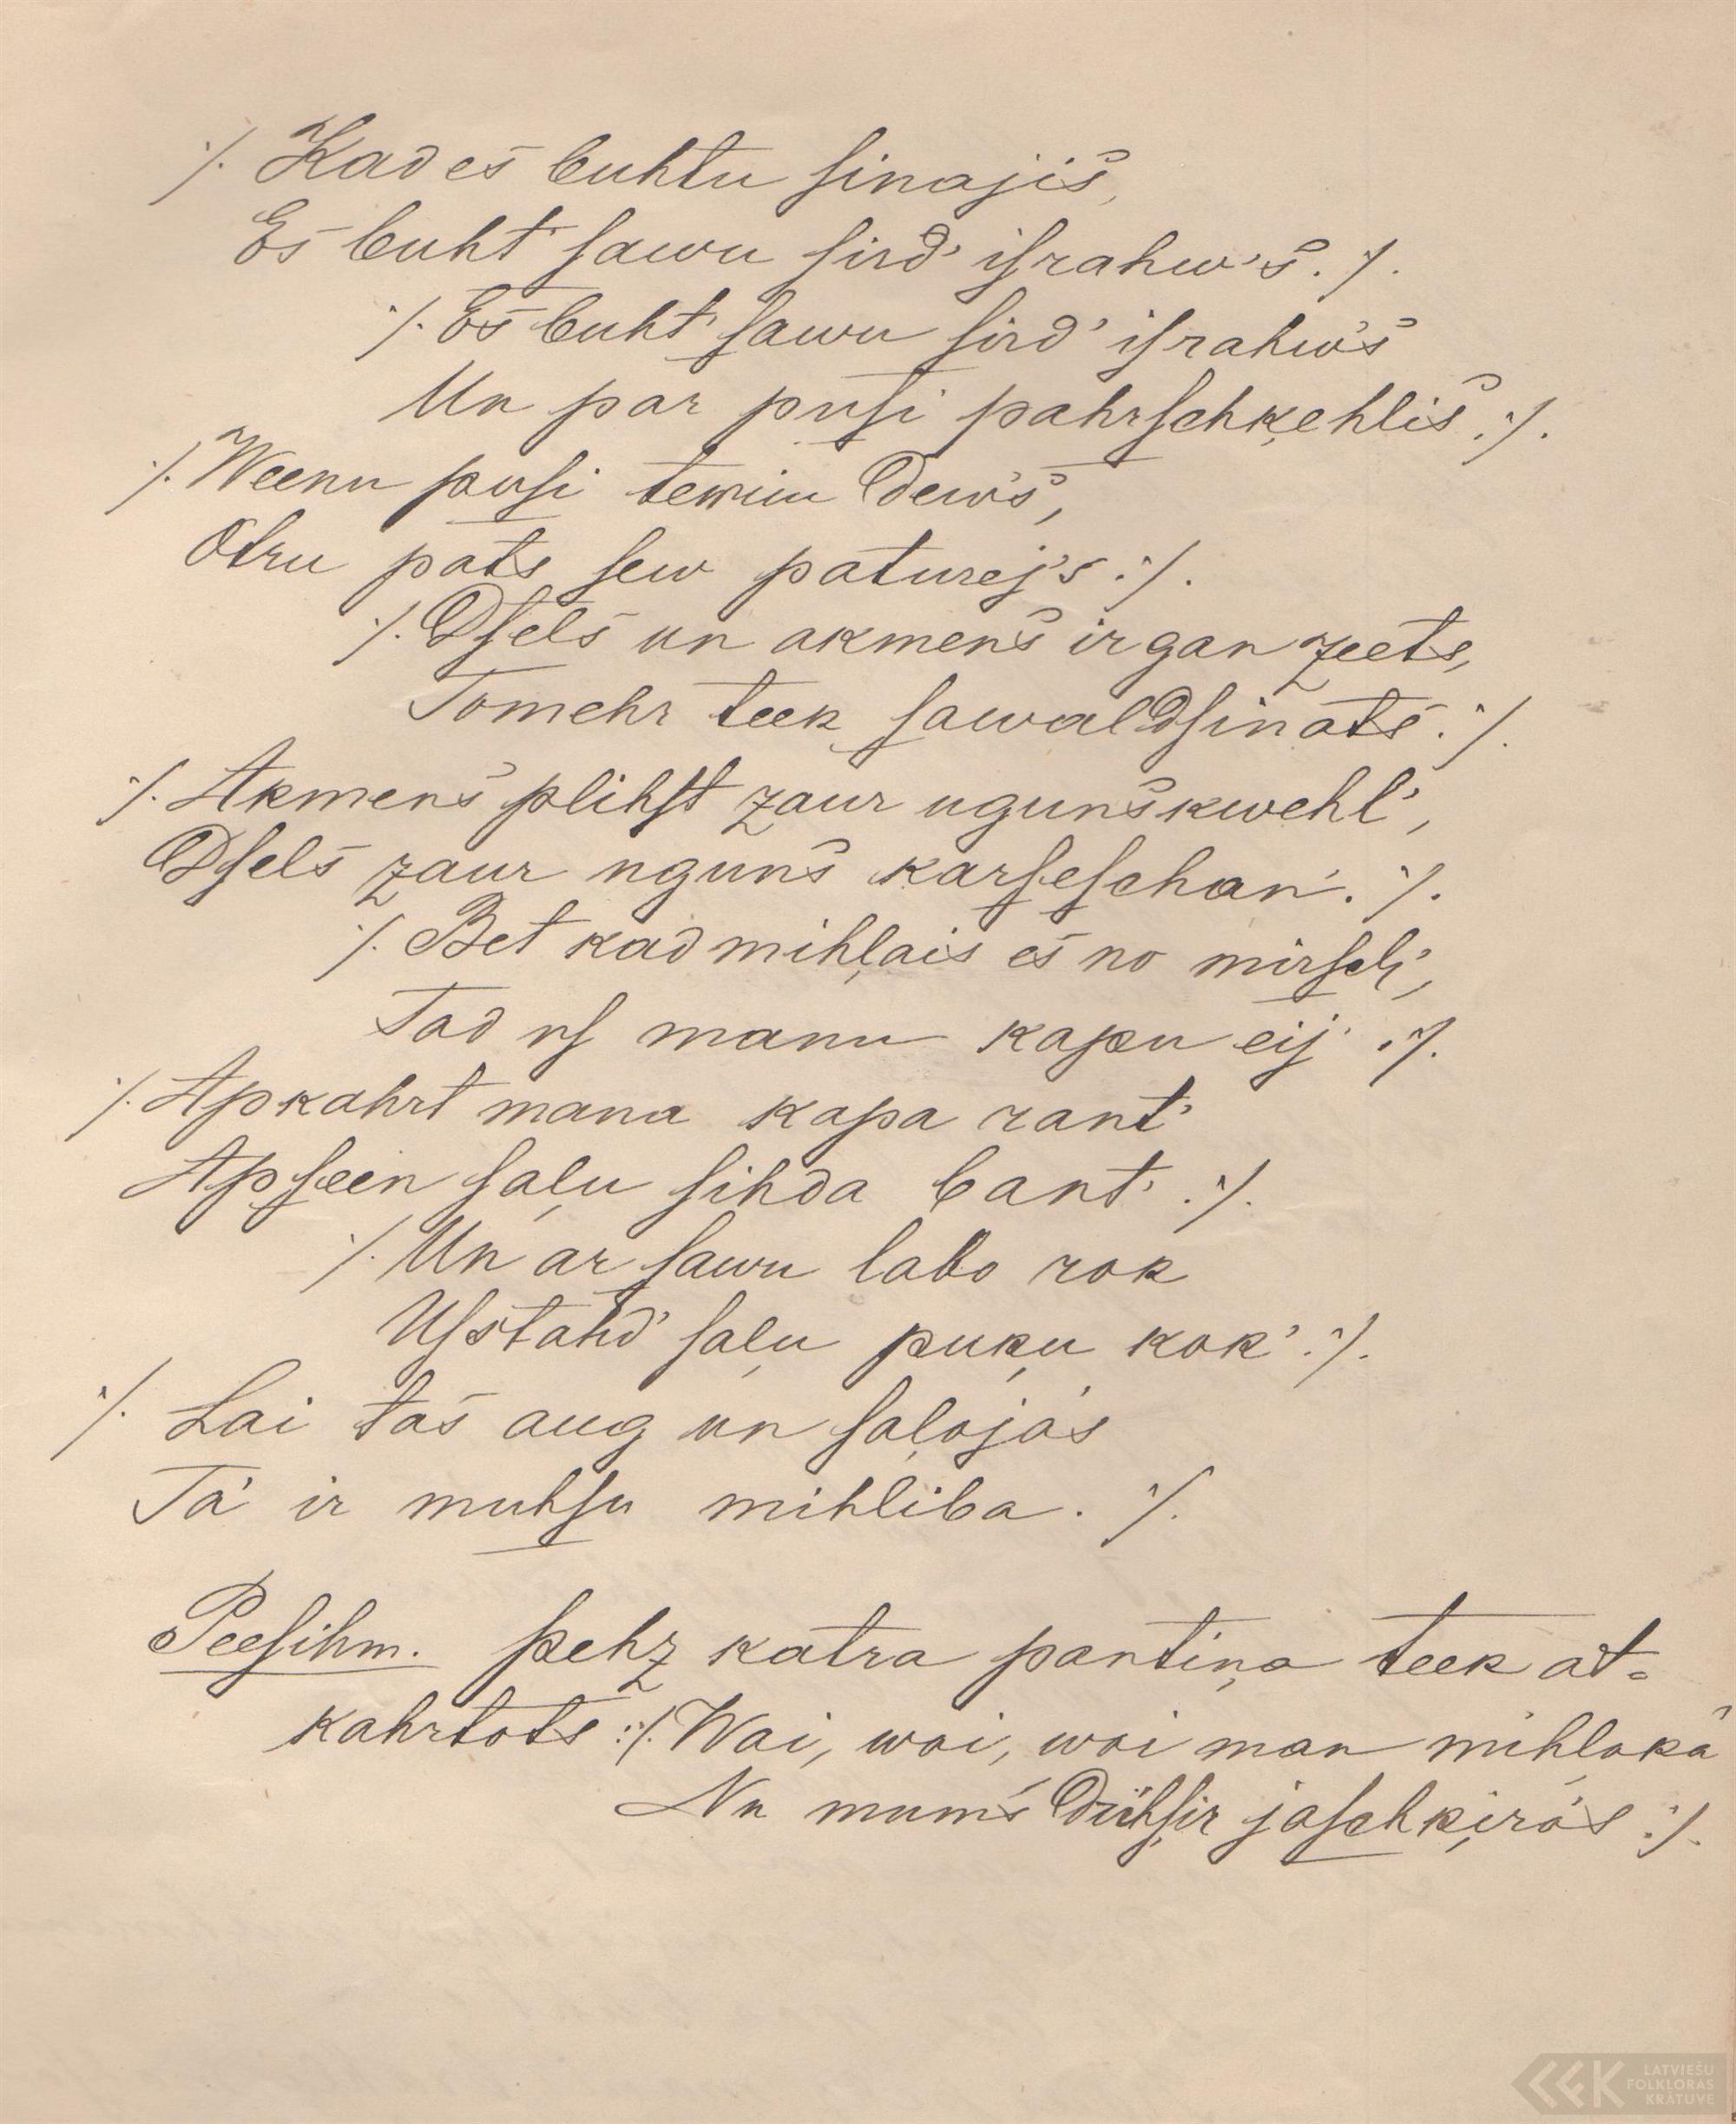 :/: Kad es buhtu ſinajis,
Es buht' ſawu ſird' iſrahw's. :/:
:/: Es buht' ſawu ſird' iſrahw's
Un par puſi pahrſchķehlis. :/:
:/: Weenu puſi tewim dew's,
Otru pats ſew paturej's :/:
:/: Dſels un akmens ir gan zeets,
Tomehr teek ſawaldſinats. :/:
:/: Akmens plihſt zaur uguns kwehl',
Dſels zaur uguns karſeſchan'. :/:
:/: Bet kad mihļais es no mirſch',
Tad uſ manu kapu eij' :/:
:/: Apkahrt mana kapa rant'
Apſeen ſaļu ſihda bant'. :/:
:/: Un ar ſawu labo rok
Uſstahd' ſaļu puķu kok'. :/:
:/: Lai tas aug un ſaļojás
Tá ir muhſu mihliba. :/:
Peeſihm. pehz katra pantiņa teek at=
kahrtots :/: Wai, wai, wai man mihļaká
Nu mums ſchķirás :/:
LATVIEŠU
FOLKLORAS
KRĀTUVE